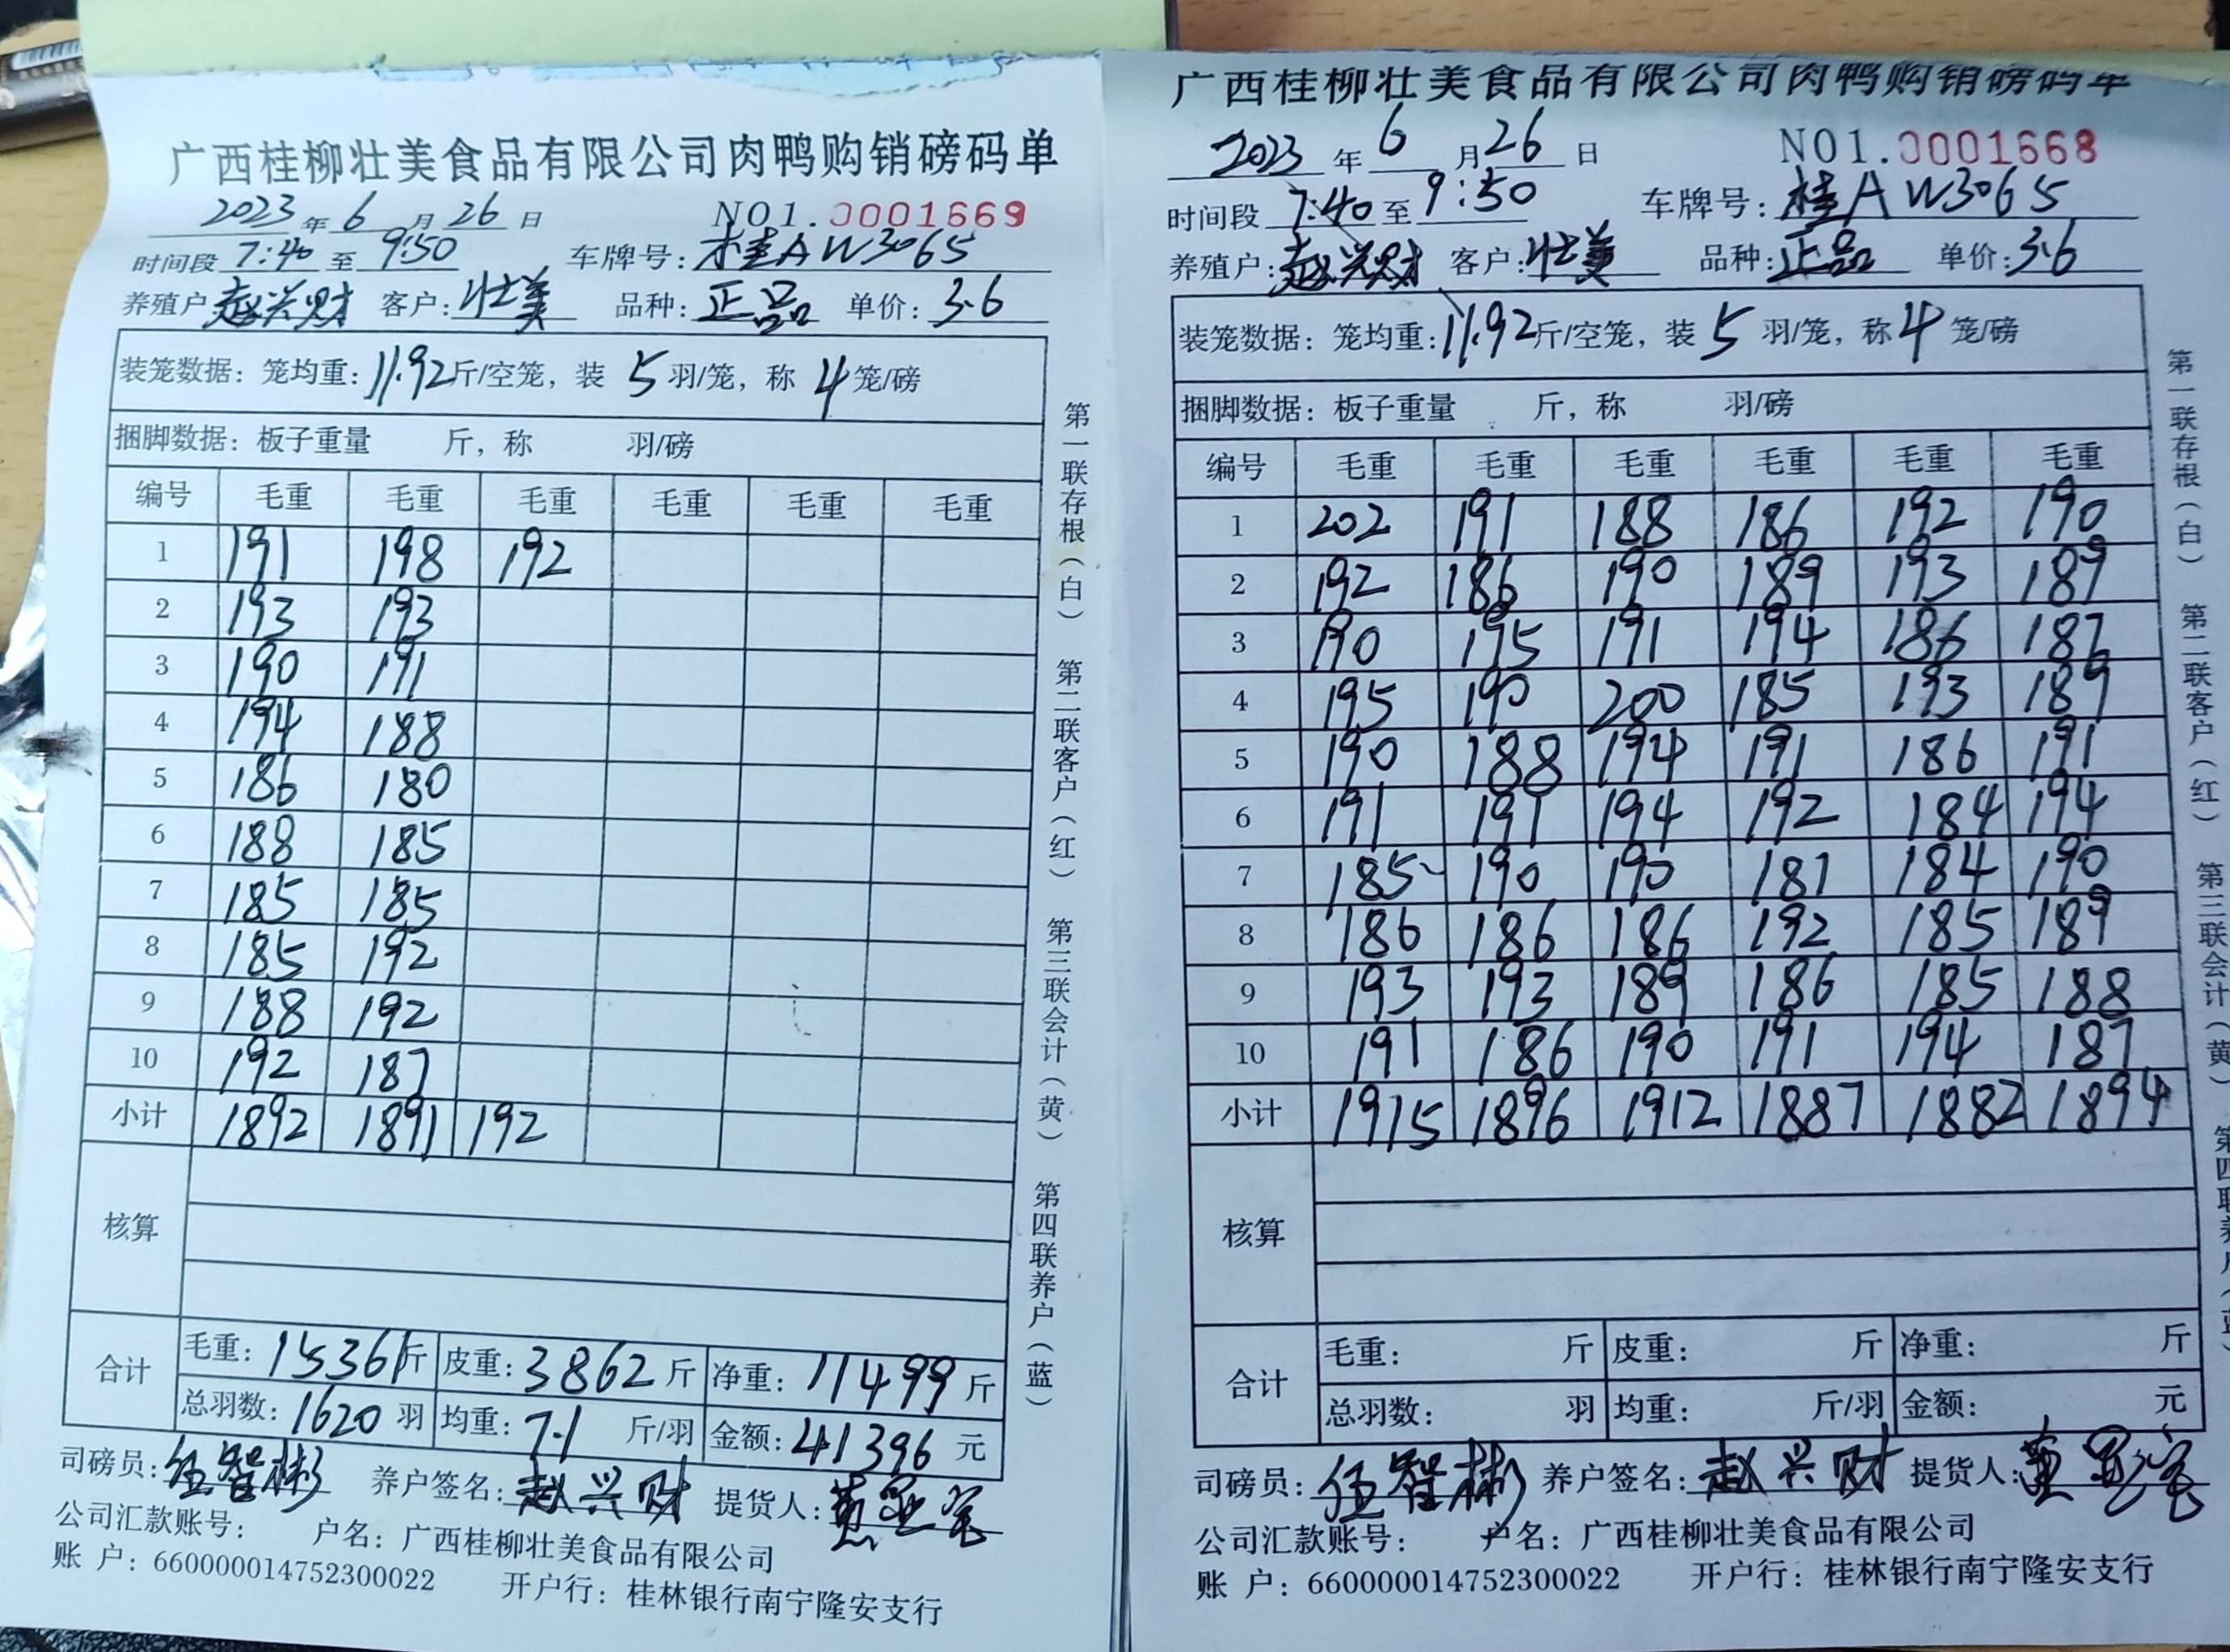 广西桂柳壮美食品有限公司肉鸭购销磅码单
2023 年 6 月 26 日 NO1.0001669
时间段 7:40 至 9:50 车牌号: 桂A W3065
养殖户 赵兴财 客户: 壮美 品种: 正品 单价: 3.6
装笼数据: 笼均重: 11.92 斤/空笼, 装 5 羽/笼, 称 4 笼/磅
捆脚数据: 板子重量 斤, 称 羽/磅
编号 毛重 毛重 毛重 毛重 毛重 毛重
1 191 198 192
2 193 193
3 190 191
4 194 188
5 186 180
6 188 185
7 185 185
8 185 192
9 188 192
10 192 187
小计 1892 1891 192
核算
合计 毛重: 15361 斤 皮重: 3862 斤 净重: 11499 斤
总羽数: 1620 羽 均重: 7.1 斤/羽 金额: 41396 元
司磅员: 伍智彬 养户签名: 赵兴财 提货人:
公司汇款账号: 户名: 广西桂柳壮美食品有限公司
账 户: 660000014752300022 开户行: 桂林银行南宁隆安支行
第一联存根(白) 第二联客户(红) 第三联会计(黄) 第四联养户(蓝)
广西桂柳壮美食品有限公司肉鸭购销磅码单
2023 年 6 月 26 日 NO1.0001668
时间段 7:40 至 9:50 车牌号: 桂A W3065
养殖户: 赵兴财 客户: 壮美 品种: 正品 单价: 3.6
装笼数据: 笼均重: 11.92 斤/空笼, 装 5 羽/笼, 称 4 笼/磅
捆脚数据: 板子重量 斤, 称 羽/磅
编号 毛重 毛重 毛重 毛重 毛重 毛重
1 202 191 188 186 192 190
2 192 186 190 189 193 189
3 190 195 191 194 186 187
4 195 190 200 185 193 189
5 190 188 194 191 186 191
6 191 191 194 192 184 194
7 185 190 190 181 184 190
8 186 186 186 192 185 189
9 193 193 189 186 185 188
10 191 186 190 191 194 187
小计 1915 1896 1912 1887 1882 1894
核算
合计 毛重: 斤 皮重: 斤 净重: 斤
总羽数: 羽 均重: 斤/羽 金额: 元
司磅员: 伍智彬 养户签名: 赵兴财 提货人:
公司汇款账号: 户名: 广西桂柳壮美食品有限公司
账 户: 660000014752300022 开户行: 桂林银行南宁隆安支行
第一联存根(白) 第二联客户(红) 第三联会计(黄) 第四联养户(蓝)